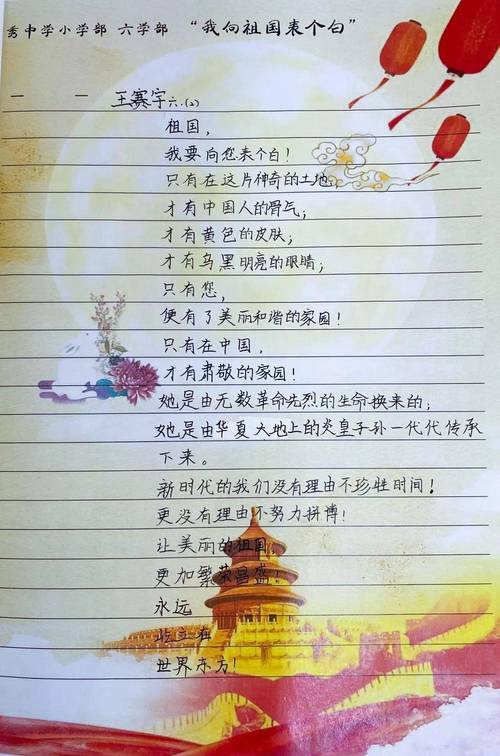 秀中学小学部 六学部 “我向祖国表个白”
一 一 王赛宇六.(2)
祖国，
我要向您表个白！
只有在这片神奇的土地，
才有中国人的骨气；
才有黄色的皮肤；
才有乌黑明亮的眼睛；
只有您，
便有了美丽和谐的家园！
只有在中国，
才有肃敬的家园！
她是由无数革命先烈的生命换来的；
她是由华夏大地上的炎皇子孙一代代传承
下来。
新时代的我们没有理由不珍牲时间！
更没有理由不努力拼博！
让美丽的祖国，
更加繁荣昌盛！
永远
屹立在
世界东方！